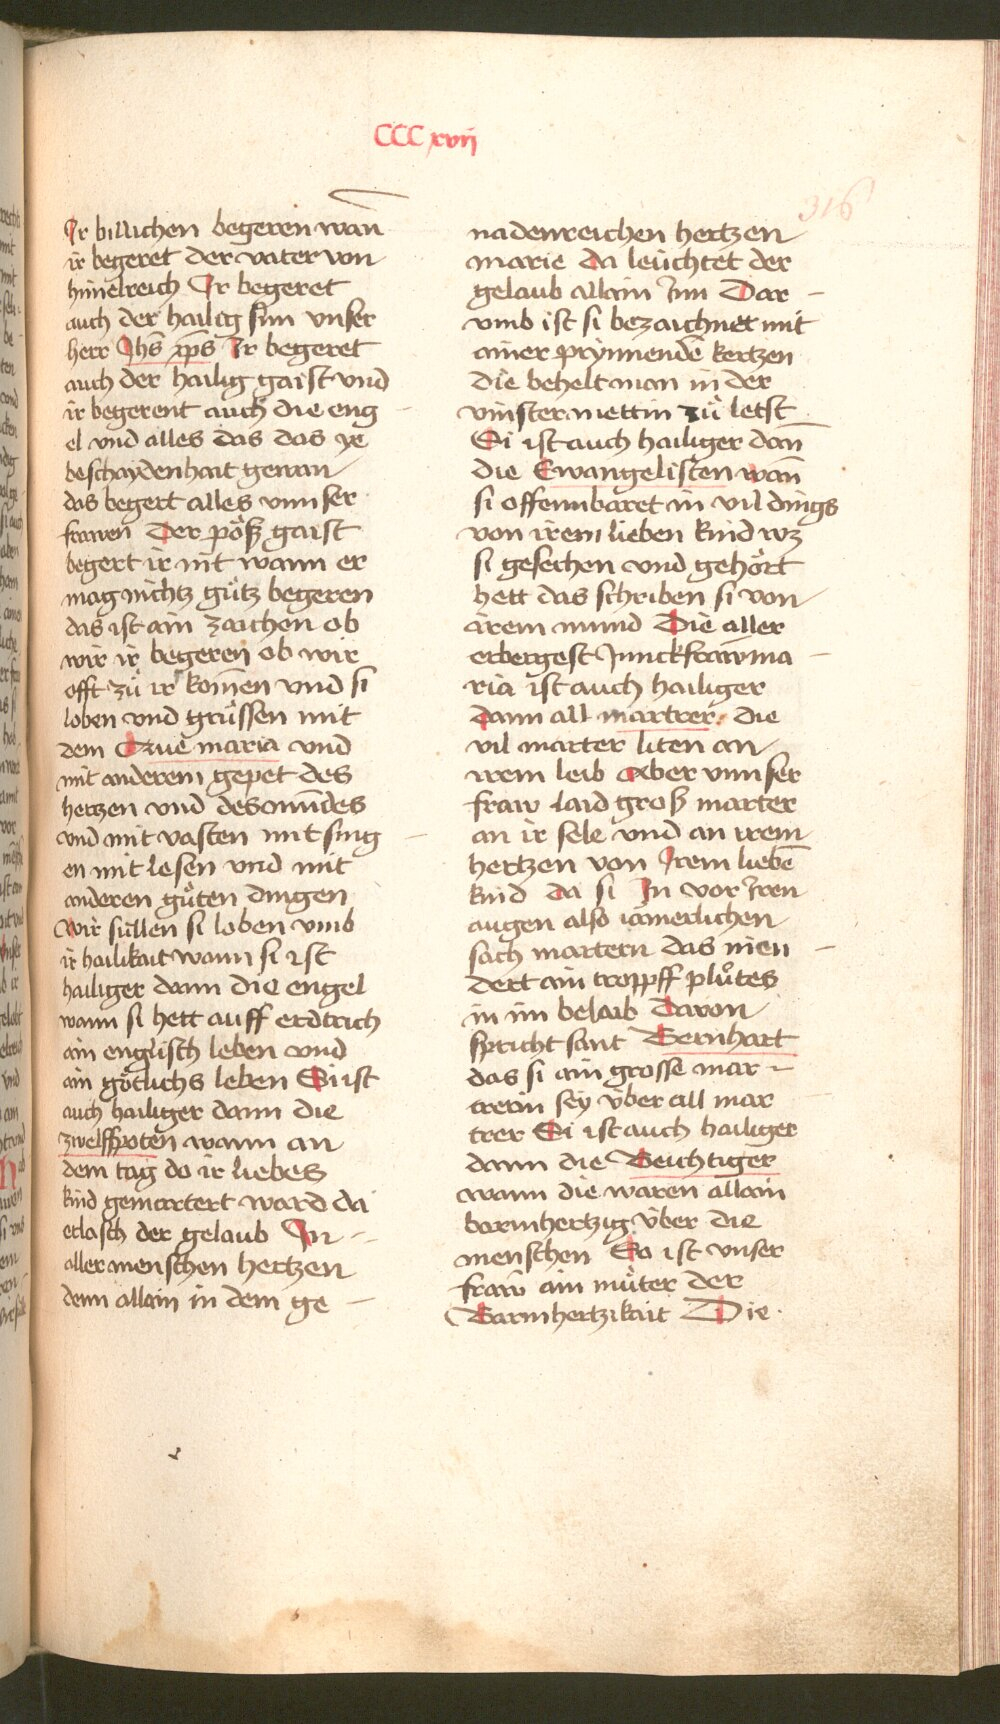 CCCxvij
316
Ir billichen begeren wan̄
ir begeret der vater von
himelreich Ir begeret
auch der hailig sun vnser
herr Jhs̄ xp̄s Ir begeret
auch der hailig gaist vnd
ir begerent auch die eng
el vnd alles das das ye
beschaydenhait gewan
das begert alles vnnser
frawen Der pöß gaist
begert ir nit wann er
mag nichtz gütz begeren
das ist ain zaichen ob
wir ir begeren ob wir
offt zü ir kom̄en vnd si
loben vnd grüssen mit
dem Aue maria vnd
mit anderem gepet des
hertzen vnd des mūndes
vnd mit vasten mit sing
en mit lesen vnd mit
anderen güten dingen
Wir süllen si loben vmb
ir hailikait wann si ist
hailiger dann die engel
wann si hett auff erdtrich
ain englisch leben vnd
ain götlichs leben Si ist
auch hailiger dann die
zwelffpoten wann an
dem tag do ir liebes
kind gemartert ward da
erlasch der gelaub In
aller menschen hertzen
denn allain in dem ge
nadenreichen hertzen
marie da leüchtet der
gelaub allain Inn Dar
vmb ist si bezaichnet mit
ainer prynnendē kertzen
die behelt man in der
vinster mettin zü letst
Si ist auch hailiger dan̄
die Ewangelisten wan̄
si offennbaret in vil dings
von irem lieben kind wz
si gesechen vnd gehört
hett das schriben si von
irem mund Die aller
erbergest Junckfraw ma
ria ist auch hailiger
dann all martrer die
vil marter liten an
irem leib Aber vnnser
fraw laid groß marter
an ir sele vnd an irem
hertzen von Irem liebē
kind da si In vor Iren
augen also iāmerlichen
sach martern das nien
dert ain tropff plůtes
in im belaib Dauon
spricht sant Bernhart
das si ain grosse mar
trerin sey über all mar
trer Si ist auch hailiger
dann die Beichtiger
wann die waren allain
barmhertzig über die
menschen So ist vnser
fraw ain müter der
Barmhertzikait Die